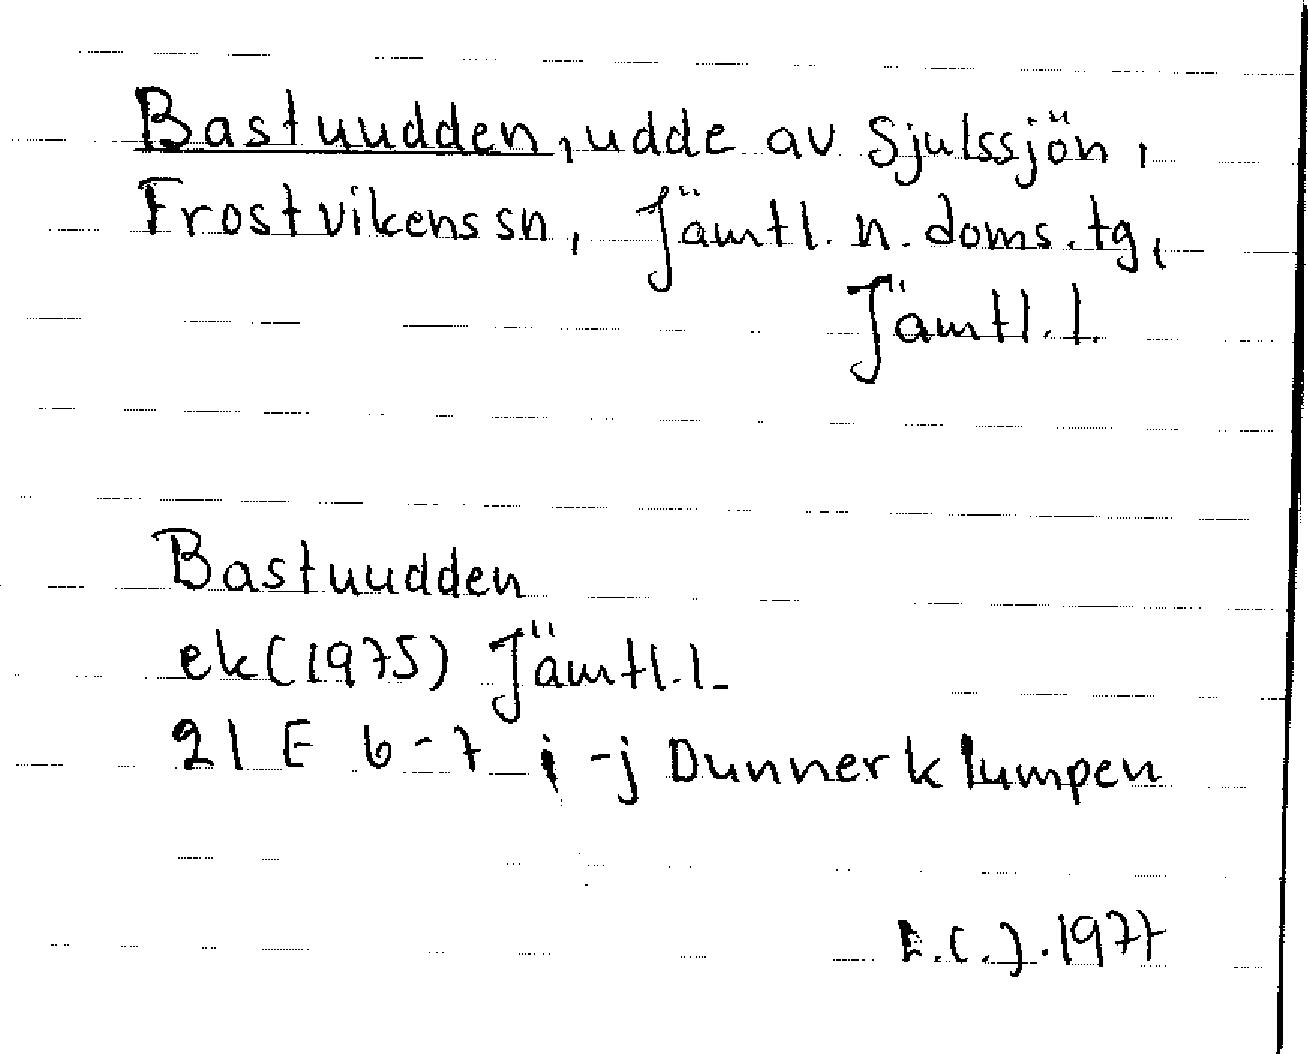 Bastuudden, udde av Sjulssjön,
Frostvikens sn, Jämtl. n. doms. tg,
Jämtl. l.
Bastuudden
ek (1975) Jämtl. l.
21 E 6-7 i-j Dunnerklumpen
1977